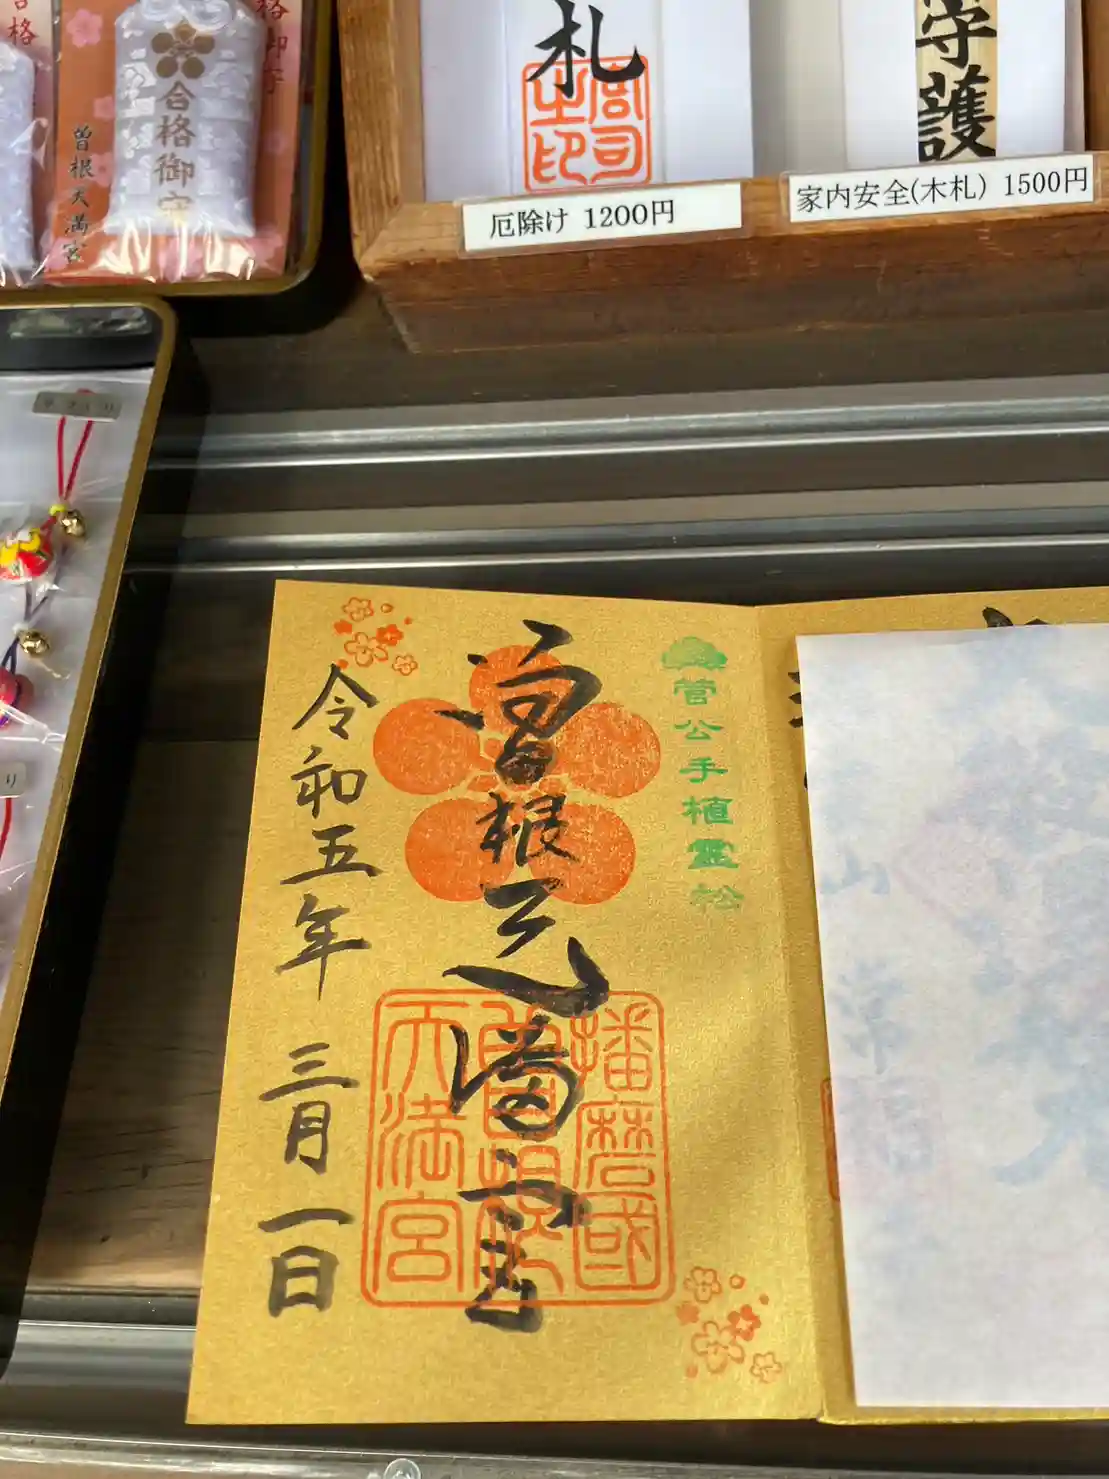 合格
合格御守
合格御守
曽根天満宮
札
宮司之印
厄除け 1200円
守護
家内安全(木札) 1500円
菅公手植霊松
曽根天満宮
播磨國
曽根
天満宮
令和五年
三月
一日
り